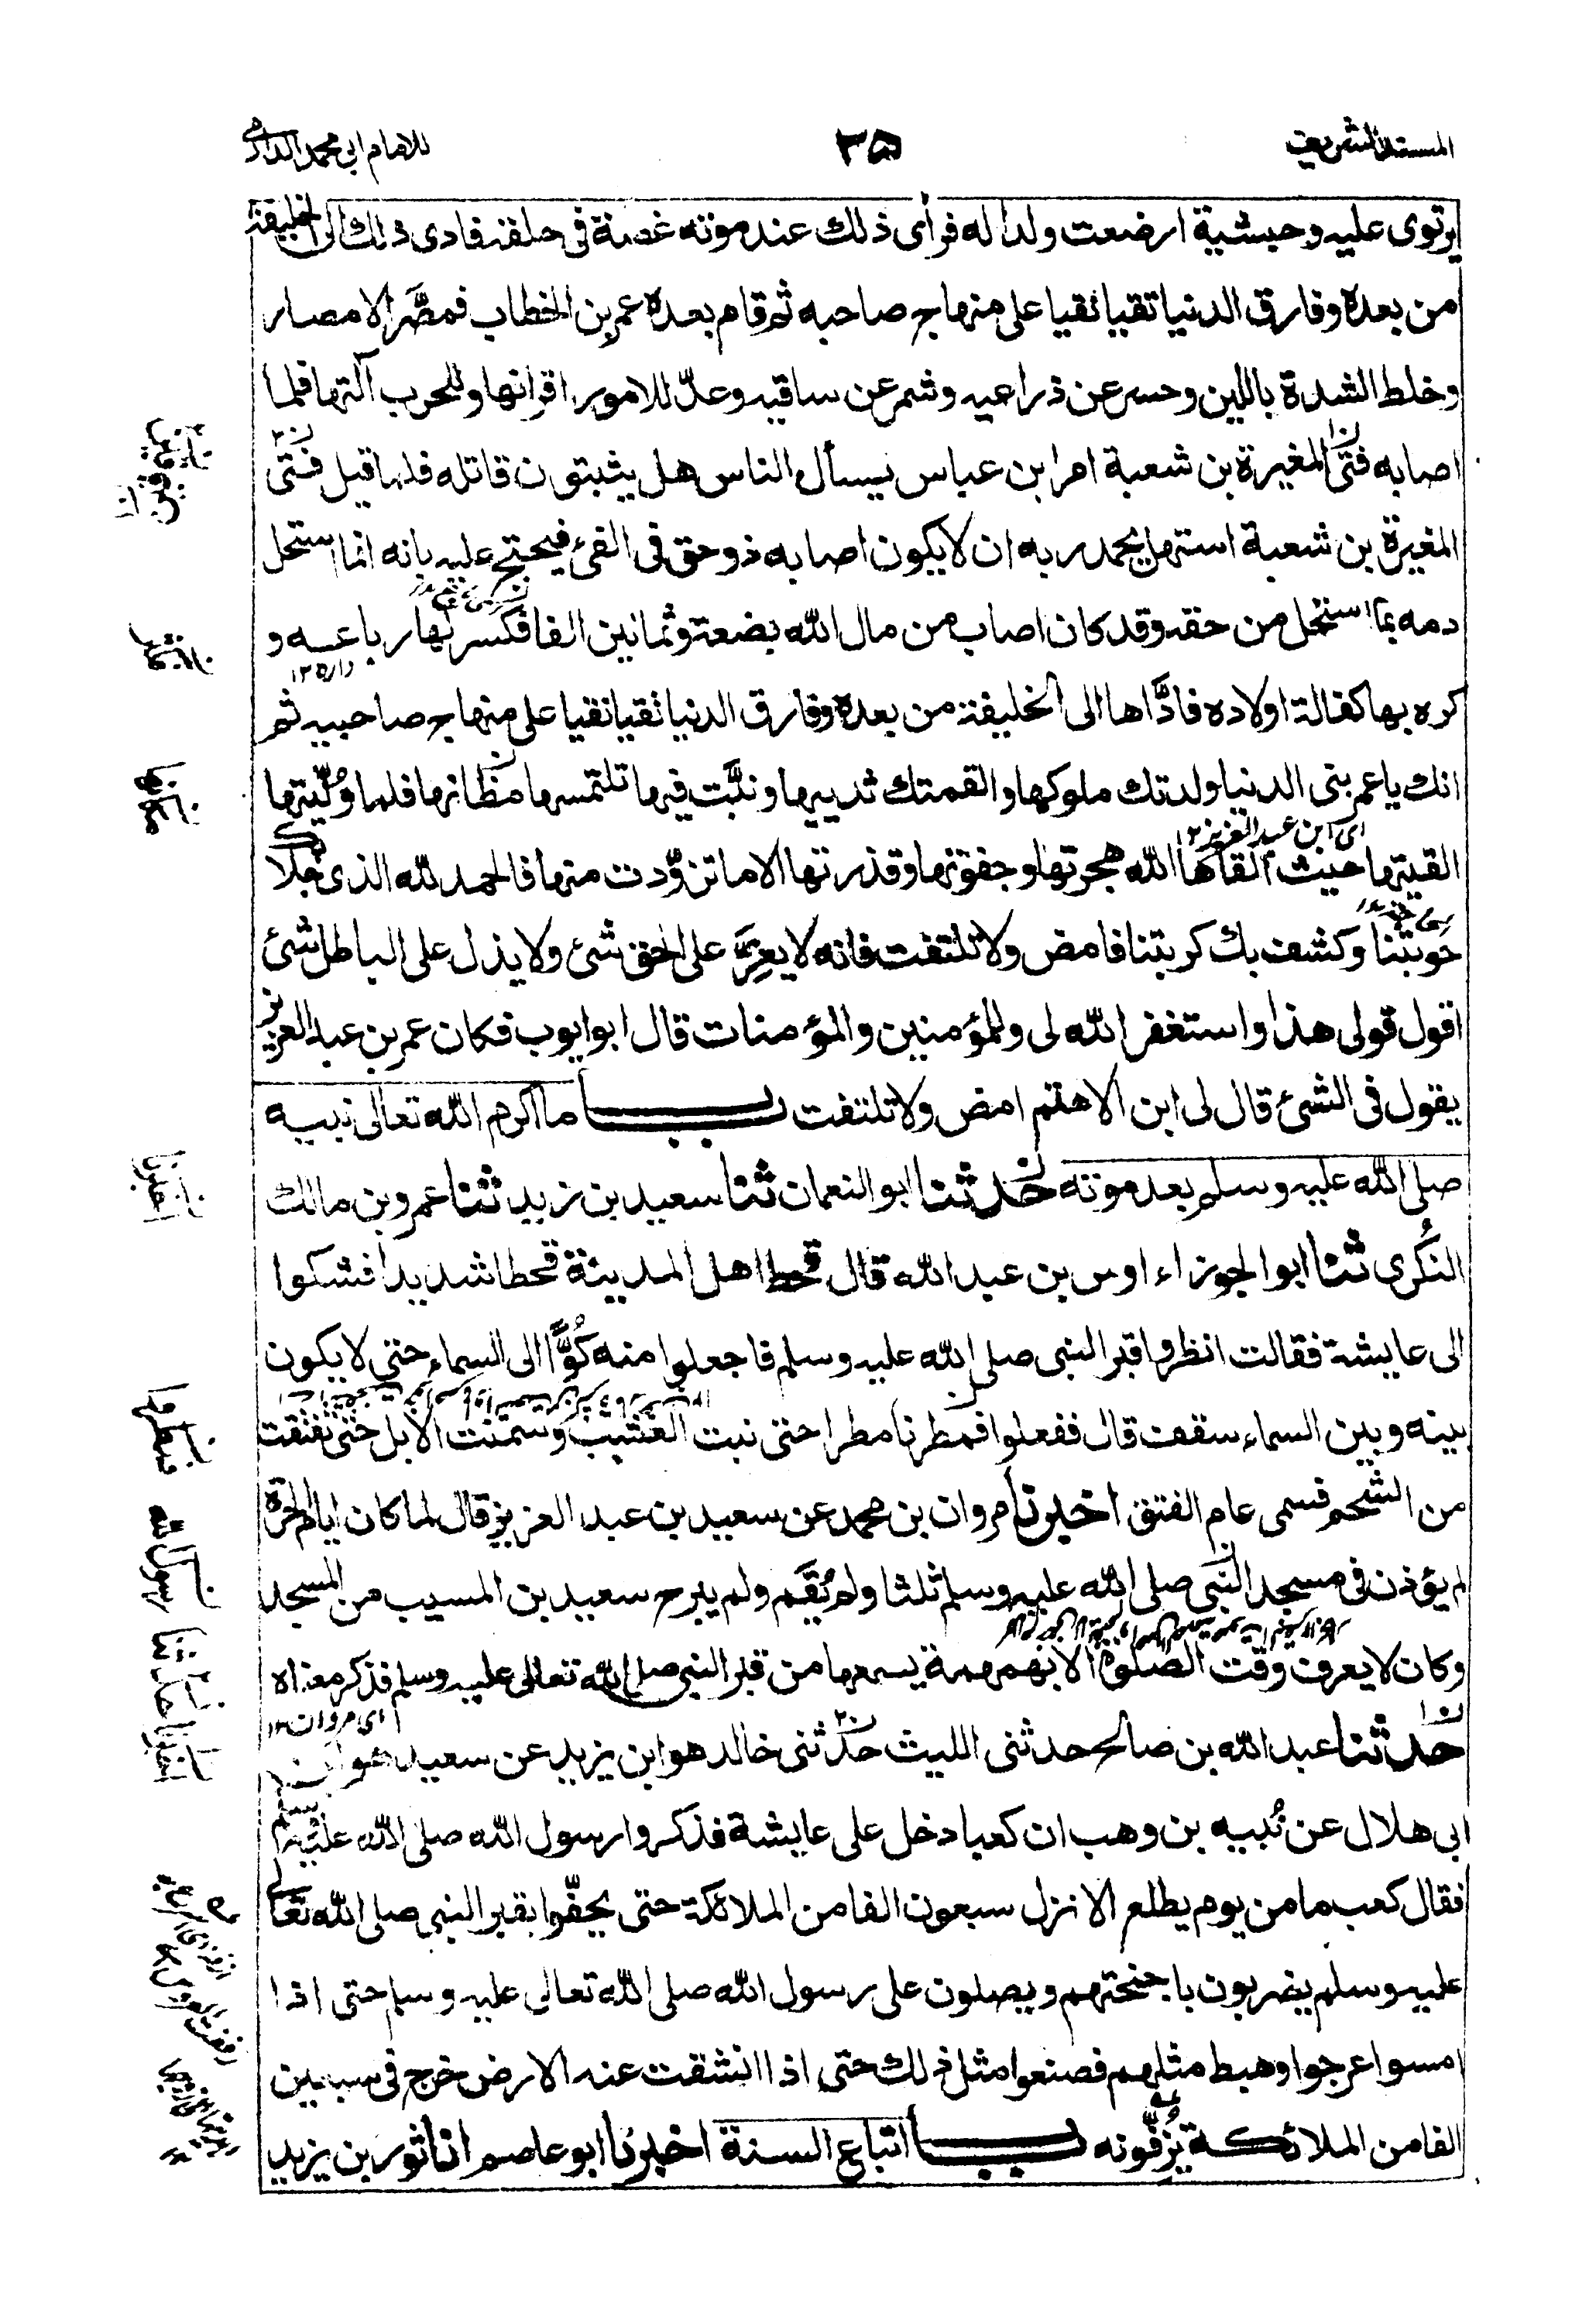 المسند الشريف
٣٥
للامام ابى محمد الدارمى
يرتوى عليه وحبشية ارضعت ولدا له فرأى ذلك عند موته غصة فى حلقه فادى ذلك الى الخليفة
من بعده وفارق الدنيا تقيا نقيا على منهاج صاحبه ثم قام بعده عمر بن الخطاب فمصَّر الامصار
وخلط الشدة باللين وحسر عن ذراعيه وشمر عن ساقيه وعدّ للامور اقرانها وللحرب آلتها فلما
اصابه فتى المغيرة بن شعبة امر ابن عباس يسأل الناس هل يثبتون قاتله فلما قيل فتى
المغيرة بن شعبة استهل يحمد ربه ان لا يكون اصابه ذو حق فى الفئ فيحتج عليه بانه انما استحل
دمه بما استحل من حقه وقد كان اصاب من مال الله بضعة وثمانين الفا فكسر لها رباعه و
داره ١٢
كره بها كفالة اولاده فادَّاها الى الخليفة من بعده وفارق الدنيا تقيا نقيا على منهاج صاحبيه ثم
انك يا عمر بنى الدنيا ولدتك ملوكها والقمتك ثدييها ونبَّت فيها تلتمسها مظانها فلما وُلّيتها
اى ابن عبد العزيز ١٢
القيتها حيث القاها الله هجرتها وجفوتها وقذرتها الا ما تزوّدت منها فالحمد لله الذى جلا بك
حوبتنا وكشف بك كربتنا فامض ولا تلتفت فانه لا يعزّ على الحق شئ ولا يذل على الباطل شئ
اقول قولى هذا واستغفر الله لى وللمؤمنين والمؤمنات قال ابو ايوب فكان عمر بن عبد العزيز
يقول فى الشئ قال لى ابن الاهتم امض ولا تلتفت باب ما اكرم الله تعالى نبيه
صلى الله عليه وسلم بعد موته حدثنا ابو النعمان ثنا سعيد بن زيد ثنا عمرو بن مالك
اخبرنا
النُكرى ثنا ابو الجوزاء اوس بن عبد الله قال قحط اهل المدينة قحطا شديدا فشكوا
الى عايشة فقالت انظروا قبر النبى صلى الله عليه وسلم فاجعلوا منه كُوًّا الى السماء حتى لا يكون
بينه وبين السماء سقف قال ففعلوا فمطرنا مطرا حتى نبت العشب وسمنت الابل حتى تفتقت
من الشحم فسمى عام الفتق اخبرنا مروان بن محمد عن سعيد بن عبد العزيز قال لما كان ايام الحرة
رسول الله
لم يؤذن فى مسجد النبى صلى الله عليه وسلم ثلثا ولم يُقَم ولم يبرح سعيد بن المسيب من المسجد
وكان لا يعرف وقت الصلوة الا بهمهمة يسمعها من قبر النبى صلى الله تعالى عليه وسلم فذكر معناه
اى مروان ١٢
حدثنا عبد الله بن صالح حدثنى الليث حدثنى خالد هو ابن يزيد عن سعيد هو ابن
ابى هلال عن نُبيه بن وهب ان كعبا دخل على عايشة فذكروا رسول الله صلى الله عليه وسلم
فقال كعب ما من يوم يطلع الا نزل سبعون الفا من الملائكة حتى يحفّوا بقبر النبى صلى الله تعالى
عليه وسلم يضربون باجنحتهم ويصلون على رسول الله صلى الله تعالى عليه وسلم حتى اذا
امسوا عرجوا وهبط مثلهم فصنعوا مثل ذلك حتى اذا انشقت عنه الارض خرج فى سبعين
الفا من الملائكة يزُفّونه باب اتباع السنة اخبرنا ابو عاصم انا ثور بن يزيد